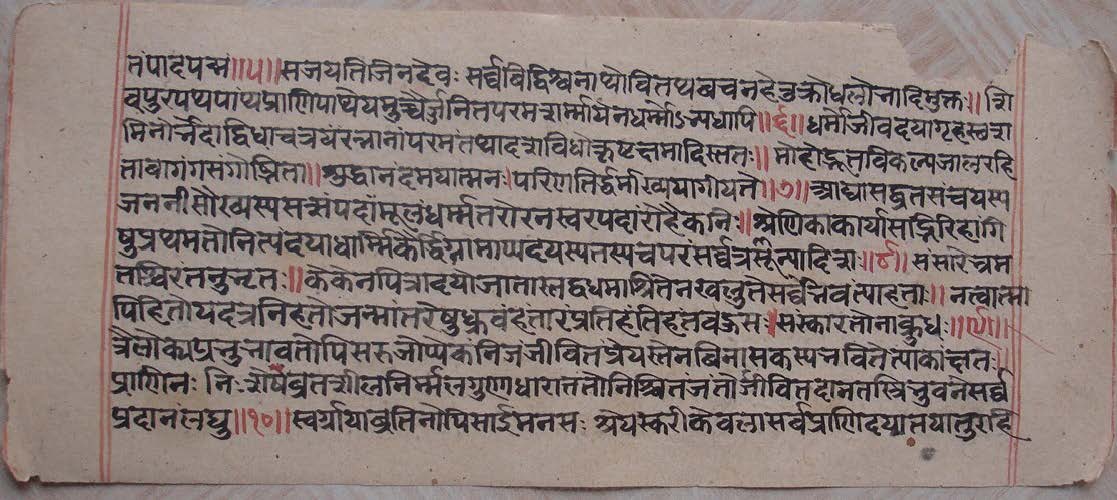 तंपादपद्मं॥५॥सजयतिजिनदेवः सर्व्वविद्विश्वनाथोवितथबचनहेतुक्रोधलोभादिमुक्तः॥शि
वपुरपथपांथप्राणिपाथेयमुच्चैर्ज्जनितपरमशर्म्मायेनधर्म्मोऽभ्यधापि॥६॥धर्म्मोजीवदयागृहस्वशा
मिनोर्भेदाद्विधाचत्रयंरत्नानांपरमंतथादशविधोत्कृष्टक्षमादिस्ततः॥मोहोद्भूतविकल्पजालरहि
तावागंगसंगोझिता॥शुद्धानंदमयात्मनःपरिणतिर्द्धर्माख्ययागीयते॥७॥आद्यासद्व्रतसंचयस्य
जननीसौख्यस्यसत्संपदांमूलंधर्म्मतरोरनस्वरपदांरोहैकनिः॥श्रेणिकाकार्यासद्भिरिहांगि
षुप्रथमतोनित्यंदयाधार्म्मिकैर्द्धिग्नामाप्यदयस्यतस्यचपरंसर्व्वत्रसून्यादिशः॥८॥संसारेभ्रम
तश्चिरंतनुभृतः॥केकेनपित्रादयोजातास्तद्वधमाश्रितेनखलुतेसर्व्वेभवंत्याहताः॥नत्वात्मा
पिहितोयदत्रनिहतोजन्मांतरेषुध्रुवंहंतारंप्रतिहंतिहंतवऊसःसंस्कारतोनाक्रुधः॥९॥
त्रैलोक्यप्रभुभावतोपिसरुजोप्येकंनिजंजीवितंप्रेयस्तेनबिनासकस्यभवितेत्याकांक्षतः॥
प्राणिनः निःशेषव्रतशीलनिर्म्मलगुणाधारात्ततोनिश्चितंजंतोर्जीवितदानतस्त्रिभुवनेसर्व्व
प्रदानंलघु॥१०॥स्वर्यायाव्रतिनोपिसार्द्रमनसः श्रेयस्करीकेवलासर्बप्राणिदयातयातुरहि